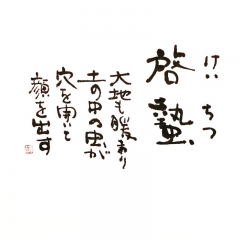 けいちつ
啓蟄
大地も暖まり
土の中の虫が
穴を開いて
顔を出す